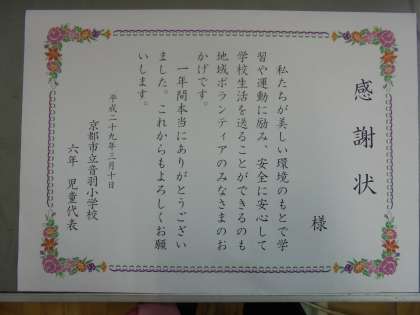 感謝状
様
私たちが美しい環境のもとで学
習や運動に励み、安全に安心して
学校生活を送ることができるのも
地域ボランティアのみなさまのお
かげです。
一年間本当にありがとうござい
ました。これからもよろしくお願
いします。
平成二十九年三月十日
京都市立音羽小学校
六年 児童代表